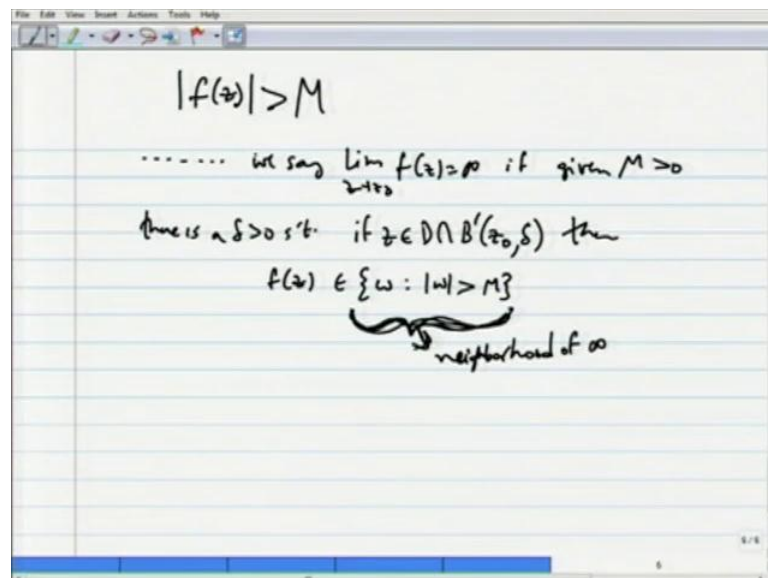 File Edit View Insert Actions Tools Help
|f(z)| > M
....... we say lim f(z) = ∞ if given M > 0
z→z₀
there is a δ > 0 s't. if z ∈ D ∩ B'(z₀, δ) then
f(z) ∈ {w : |w| > M}
neighborhood of ∞
6/6
6